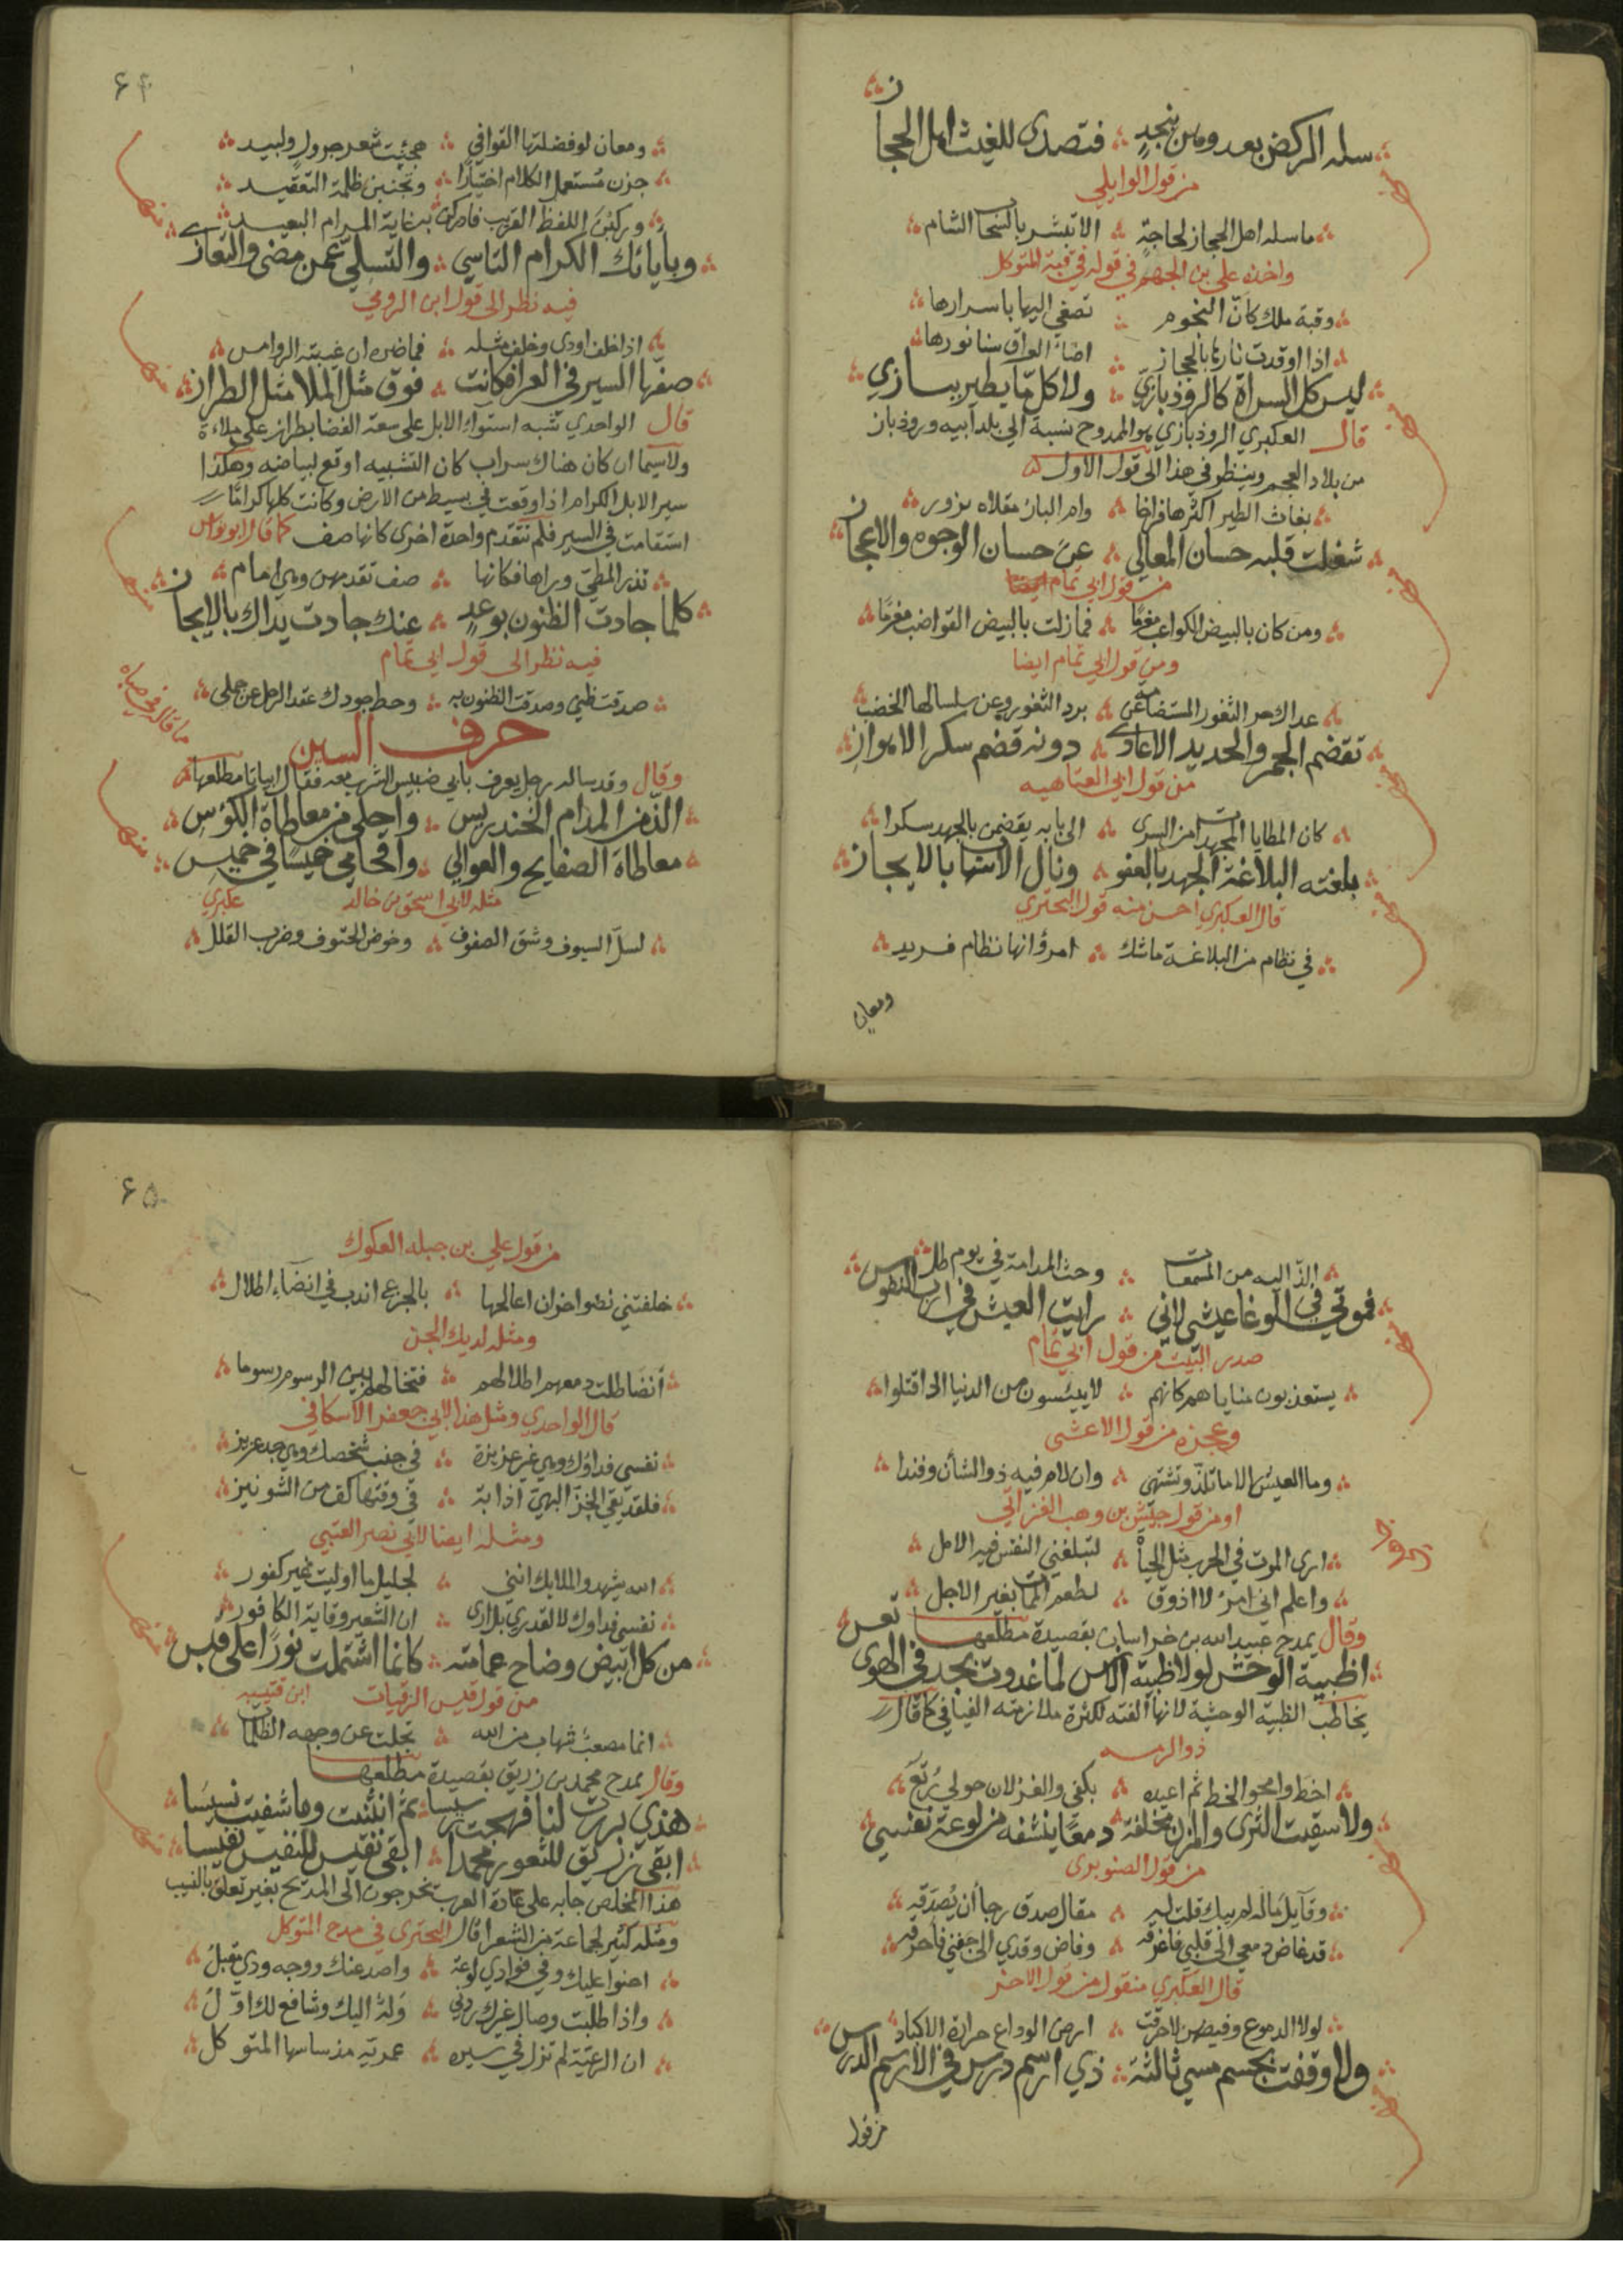 سله الركض بعد وهن بنجد فتصدى للغيث اهل الحجاز
من قول الوايلي
ما سله اهل الحجاز لحاجة الا تبشر بالسحاب الشام
واخذه علي بن الجهم في قوله في قبة المتوكل
وقبة ملك كان النجوم تصغي اليها باسرارها
اذا اوقدت نارها بالحجاز اضاء العراق سنا نورها
ليس كل السراة كالروذباري ولا كل ما يطير ببازي
قال العكبري الروذبازي هو الممدوح نسبة الي بلد ابيه وروذباز
من بلاد العجم وينظر في هذا الى قول الاول
بغاث الطير اكثرها فراخا وام الباز مقلاه نزور
شغلت قلبه حسان المعالي عن حسان الوجوه والاعجاز
من قول ابي تمام
ومن كان بالبيض الكواعب مغرما فما زلت بالبيض القواضب مغرما
ومن قول ابي تمام ايضا
عداك حر الثغور المستضامة عن برد الثغور وعن سلسالها الخصب
تقضم الجمر والحديد الاعادي دونه قضم سكر الاهواز
من قول ابي العتاهيه
كان المطايا المجهدات من السرى الى بابه يقضمن بالجهد سكرا
بلغته البلاغة الجهد بالعفو ونال الاسهاب بالايجاز
قال العكبري احسن منه قول البحتري
في نظام من البلاغة ما شك امرؤ انها نظام فريد
ومعان
۶۴
ومعان لو فضلتها القوافي هجنت شعر جرول ولبيد
حزن مستعمل الكلام اختيارا وتجنبن ظلمة التعقيد
وركبن اللفظ القريب فادركن به غاية المرام البعيد
وبأبائك الكرام التاسي والتسلي عمن مضى والتعازي
فيه نظر الى قول ابن الرومي
اذا خلف اودى وخلف مثله فما ضره ان غيبته الروامس
صفها السير في العرا فكانت فوق مثل الملا مثل الطراز
قال الواحدي شبه استواء الابل على سعة الفضا بطراز على ملاءة
ولاسيما ان كان هناك سراب كان التشبيه اوقع لبياضه وهكذا
سير الابل الكرام اذا وقعت في بسيط من الارض وكانت كلها كراما
استقامت في السير فلم تتقدم واحدة اخرى كانها صف كما قال ابو نواس
تذر المطي وراها فكانها صف تقدمهن وهي امام
كلما جادت الظنون بوعد عنك جادت يداك بالايجاز
فيه نظر الى قول ابي تمام
صدقت ظني وصدقت الظنون به وحط جودك عقد الرحل عن جملي
ما قاله في صباه
حرف السين
وقال وقد ساله رجل يعرف بابي ضبيس الشرب معه فقال ابياتا مطلعها
الذ من المدام الخندريس واحلى من معاطاة الكؤس
معاطاة الصفايح والعوالي واقحامي خميسا في خميس
مثله لابي اسحق بن خالد عكبري
لسل السيوف وشق الصفوف وخوض الحتوف وضرب القلل
الذ اليه من المسمعات وحث المدامة في يوم طل
فموتي في الوغا عيشي لاني رايت العيش في ارب النفوس
صدر البيت من قول ابي تمام
يستعذبون مناياهم كانهم لا يبئسون من الدنيا اذا قتلوا
وعجزه من قول الاعشى
وما العيش الا ما تلذ وتشتهي وان لام فيه ذو الشنان وفندا
او من قول جيش بن وهب الفزاني
ارى الموت في الحرب مثل الحياة لتبلغني النفس فيه الامل
واعلم اني امرؤ لا اذوق لطعم الممات بغير الاجل
وقال يمدح عبيد الله بن خراسان بقصيدة مطلعها
اظبية الوحش لولا ظبية الانس لما غدوت بجد في الهوى تعس
يخاطب الظبيه الوحشية لانها الفته لكثرة ملازمته الفيافي كما قال
ذو الرمه
اخط وامحو الخط ثم اعيده بكفي والغزلان حولي رتع
ولا سقيت الثرى والمزن مخلفة دمعا ينشفه من لوعة نفسي
من قول الصنوبري
وقايل ما له لم يبك قلت له مقال صدق رجا ان يصدقه
قد غاض دمعي الى قلبي فاغرقه وفاض وقدي الى جفني فاحرقه
قال العكبري منقول من قول الاخر
لولا الدموع وفيضهن لاحرقت ارض الوداع حرارة الاكباد
ولا وقفت بجسم مسي ثالثة ذي ارسم درس في الارسم الدرس
من قول
۶۵
من قول علي بن جبله العكوك
خلفتني نضو احزان اعالجها بالجزع اندب في انضاء اطلال
ومثله لديك الجن
أنضا طلت دمعهم اطلالهم فتخالهم بين الرسوم رسوما
قال الواحدي ومثل هذا لابي جعفر الاسكافي
نفسي فداؤك وهي غير عزيزة في جنب شخصك وهي جد عزيز
فلقد يقي الخز البهي اذا بدا في وقتها كف من الشونيز
ومثله ايضا لابي نصر العتبي
الله يشهد والملايك انني لجليل ما اوليت غير كفور
نفسي فداوك لا لقدري بل ارى ان الشعير وقاية الكافور
من كل ابيض وضاح عمامته كانما اشتملت نورا على قبس
من قول قيس الرقيات ابن قتيبه
انما مصعب شهاب من الله تجلت عن وجهه الظلما
وقال يمدح محمد بن زريق بقصيدة مطلعها
هذي برزت لنا فهجت رسيسا ثم انثنت وما شفيت نسيسا
ابقى زريق للثغور محمدا ابقى نفيس للنفيس نفيسا
هذا المخلص جا به على عادة العرب يخرجون الى المديح بغير تعلق بالنسيب
ومثله كثير لجماعة من الشعرا قال البحتري في مدح المتوكل
احنوا عليك وفي فوادي لوعة واصد عنك ووجه ودي مقبل
واذا طلبت وصال غيرك ردني وله اليك وشافع لك اول
ان الرعية لم تزل في سيره عمرية مذ ساسها المتوكل